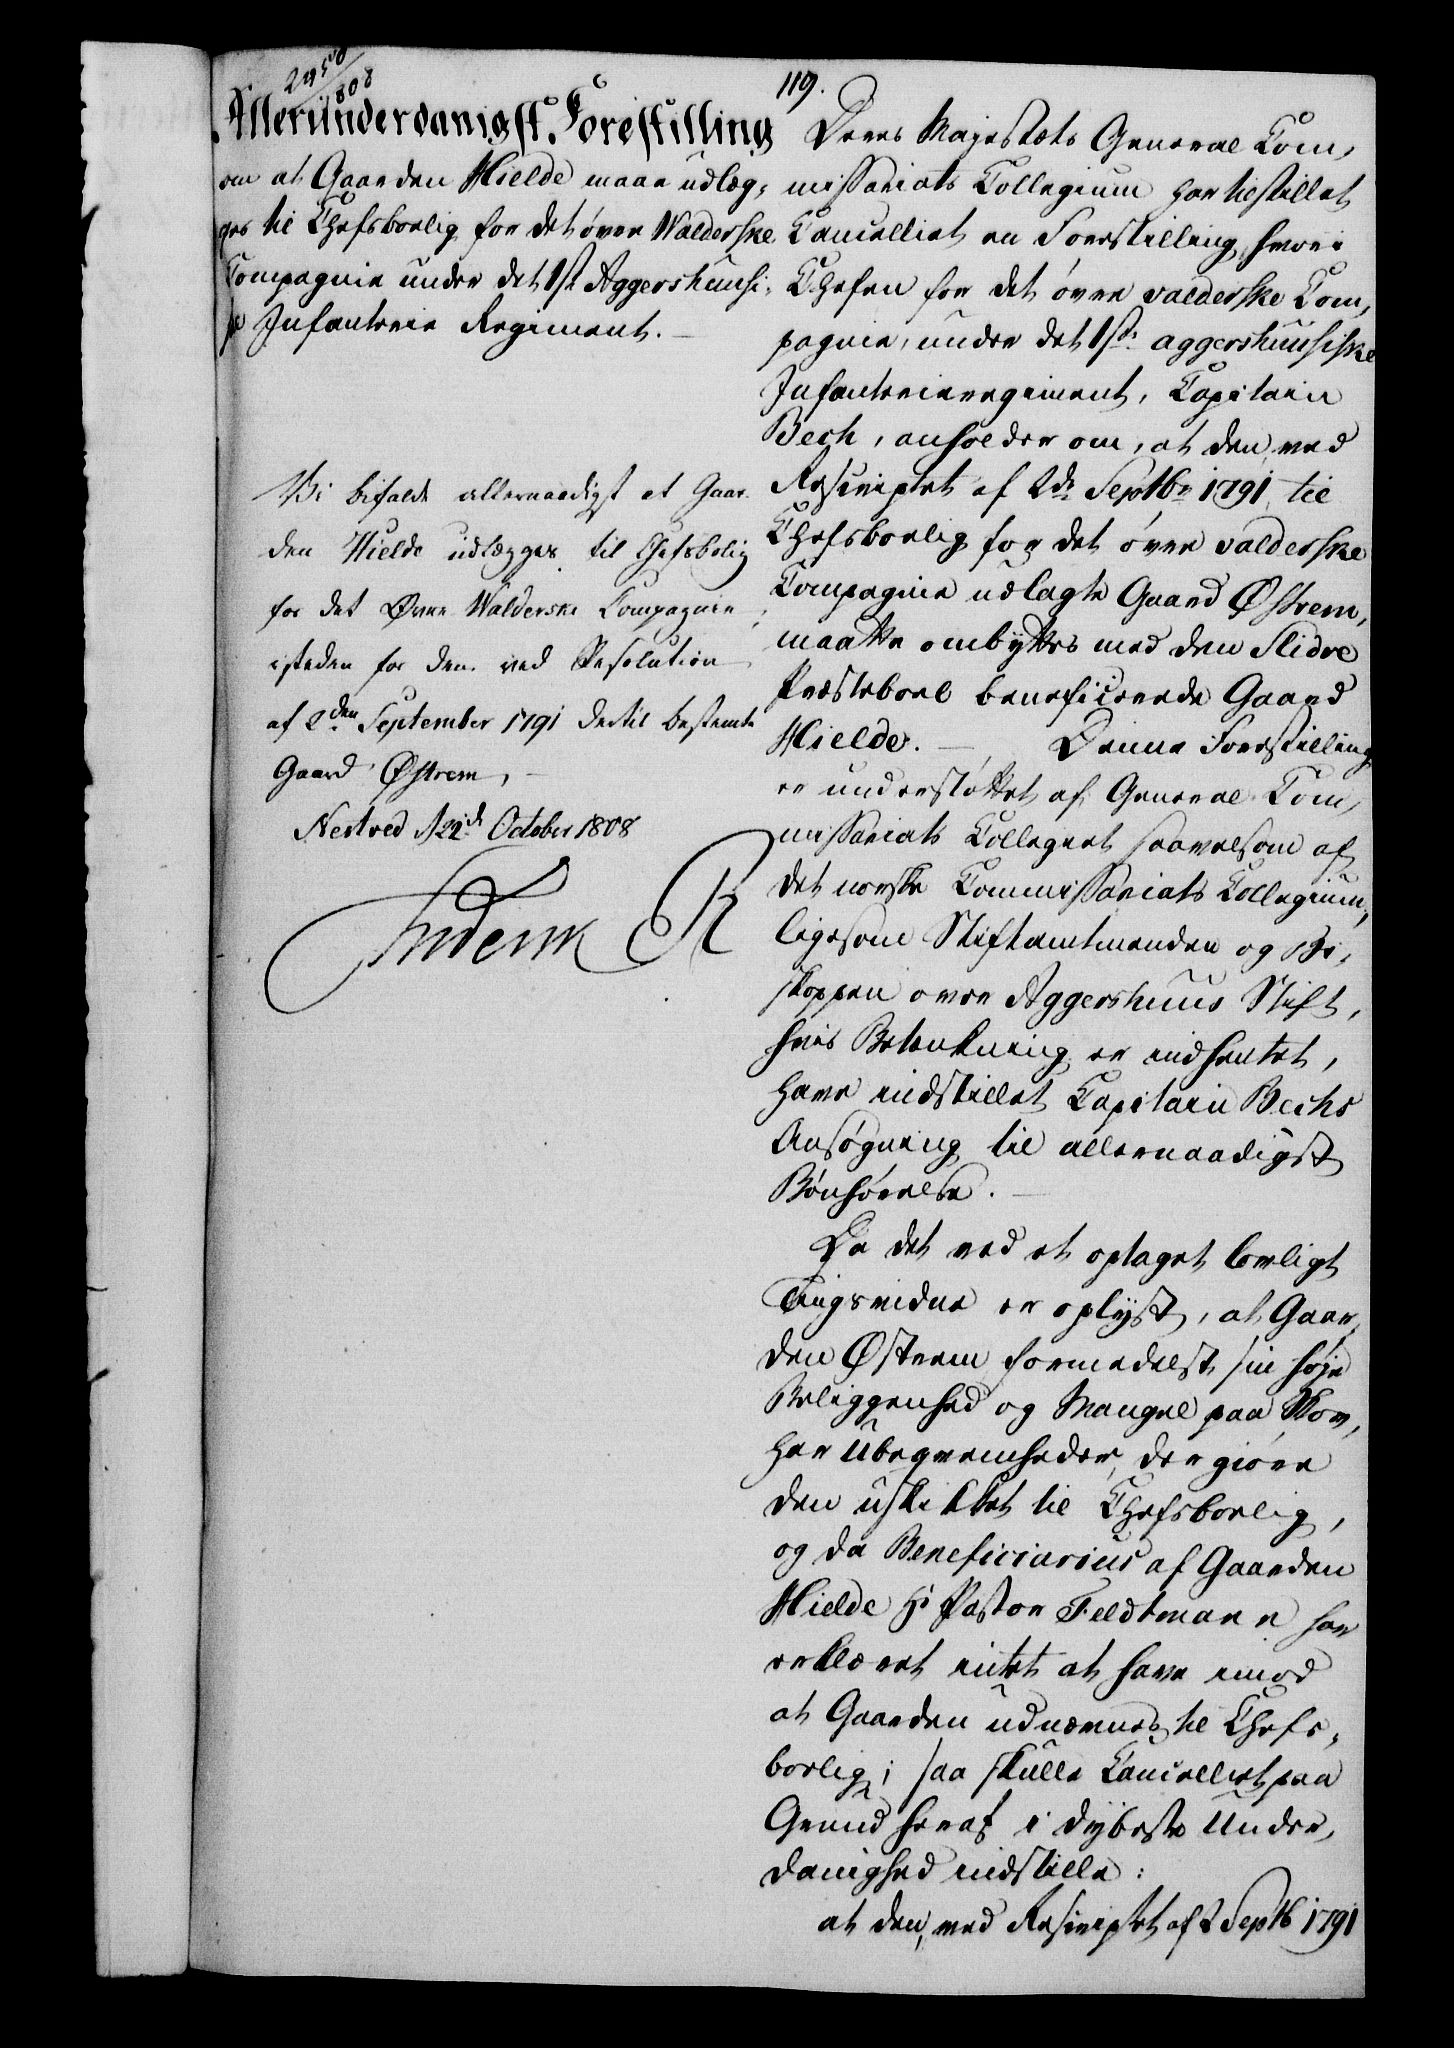 2950/808
119.
Allerunderdanigst Forestilling
om at Gaarden Hielde maae udlæg-
ges til Chefsboelig for det øvre Walderske
Compagnie under det 1ste Aggershuusi-
ske Infanterie Regiment. —
Vi bifalde allernaadigst at Gaar-
den Hielde udlægges til Chefsbolig
for det Øvre Walderske Compagnie,
isteden for den ved Resolution
af 2den September 1791 dertil bestemte
Gaard Østrem, —
Nestved d 22d October 1808
Frederik R
Deres Majestæts General Com-
missariats Collegium har tilstillet
Cancelliet en Forestilling, hvori
Chefen for det øvre valderske Com-
pagnie, under det 1ste aggershuusiske
Infanterieregiment, Capitain
Bech, anholder om, at den ved
Rescriptet af 2de Septbr 1791 til
Chefsboelig for det øvre valderske
Compagnie udlagte Gaard Østrem,
maatte ombyttes med den Slidre
Præsteboel beneficerede Gaard
Hielde. — Denne Forestilling
er understøttet af General Com-
missariats Collegiet saavelsom af
det norske Commissariats Collegium,
ligesom Stiftamtmanden og Bi-
skoppen over Aggershuus Stift,
hvis Betænkning er indhentet,
have indstillet Capitain Bechs
Ansøgning til allernaadigst
Bønhørelse. —
Da det ved et optaget lovligt
Tingsvidne er oplyst, at Gaar-
den Østrem formedelst sin høje
Beliggenhed og Mangel paa Skov,
har Ubeqvemheder, der giøre
den uskikket til Chefsboelig,
og da Beneficiarius af Gaarden
Hielde Hr Pastor Feldtmann har
erklæret intet at have imod
at Gaarden udnævnes til Chefs-
boelig; saa skulle Cancelliet paa
Grund heraf i dybeste Under-
danighed indstille:
at den, ved Rescriptet af 2 Septb 1791